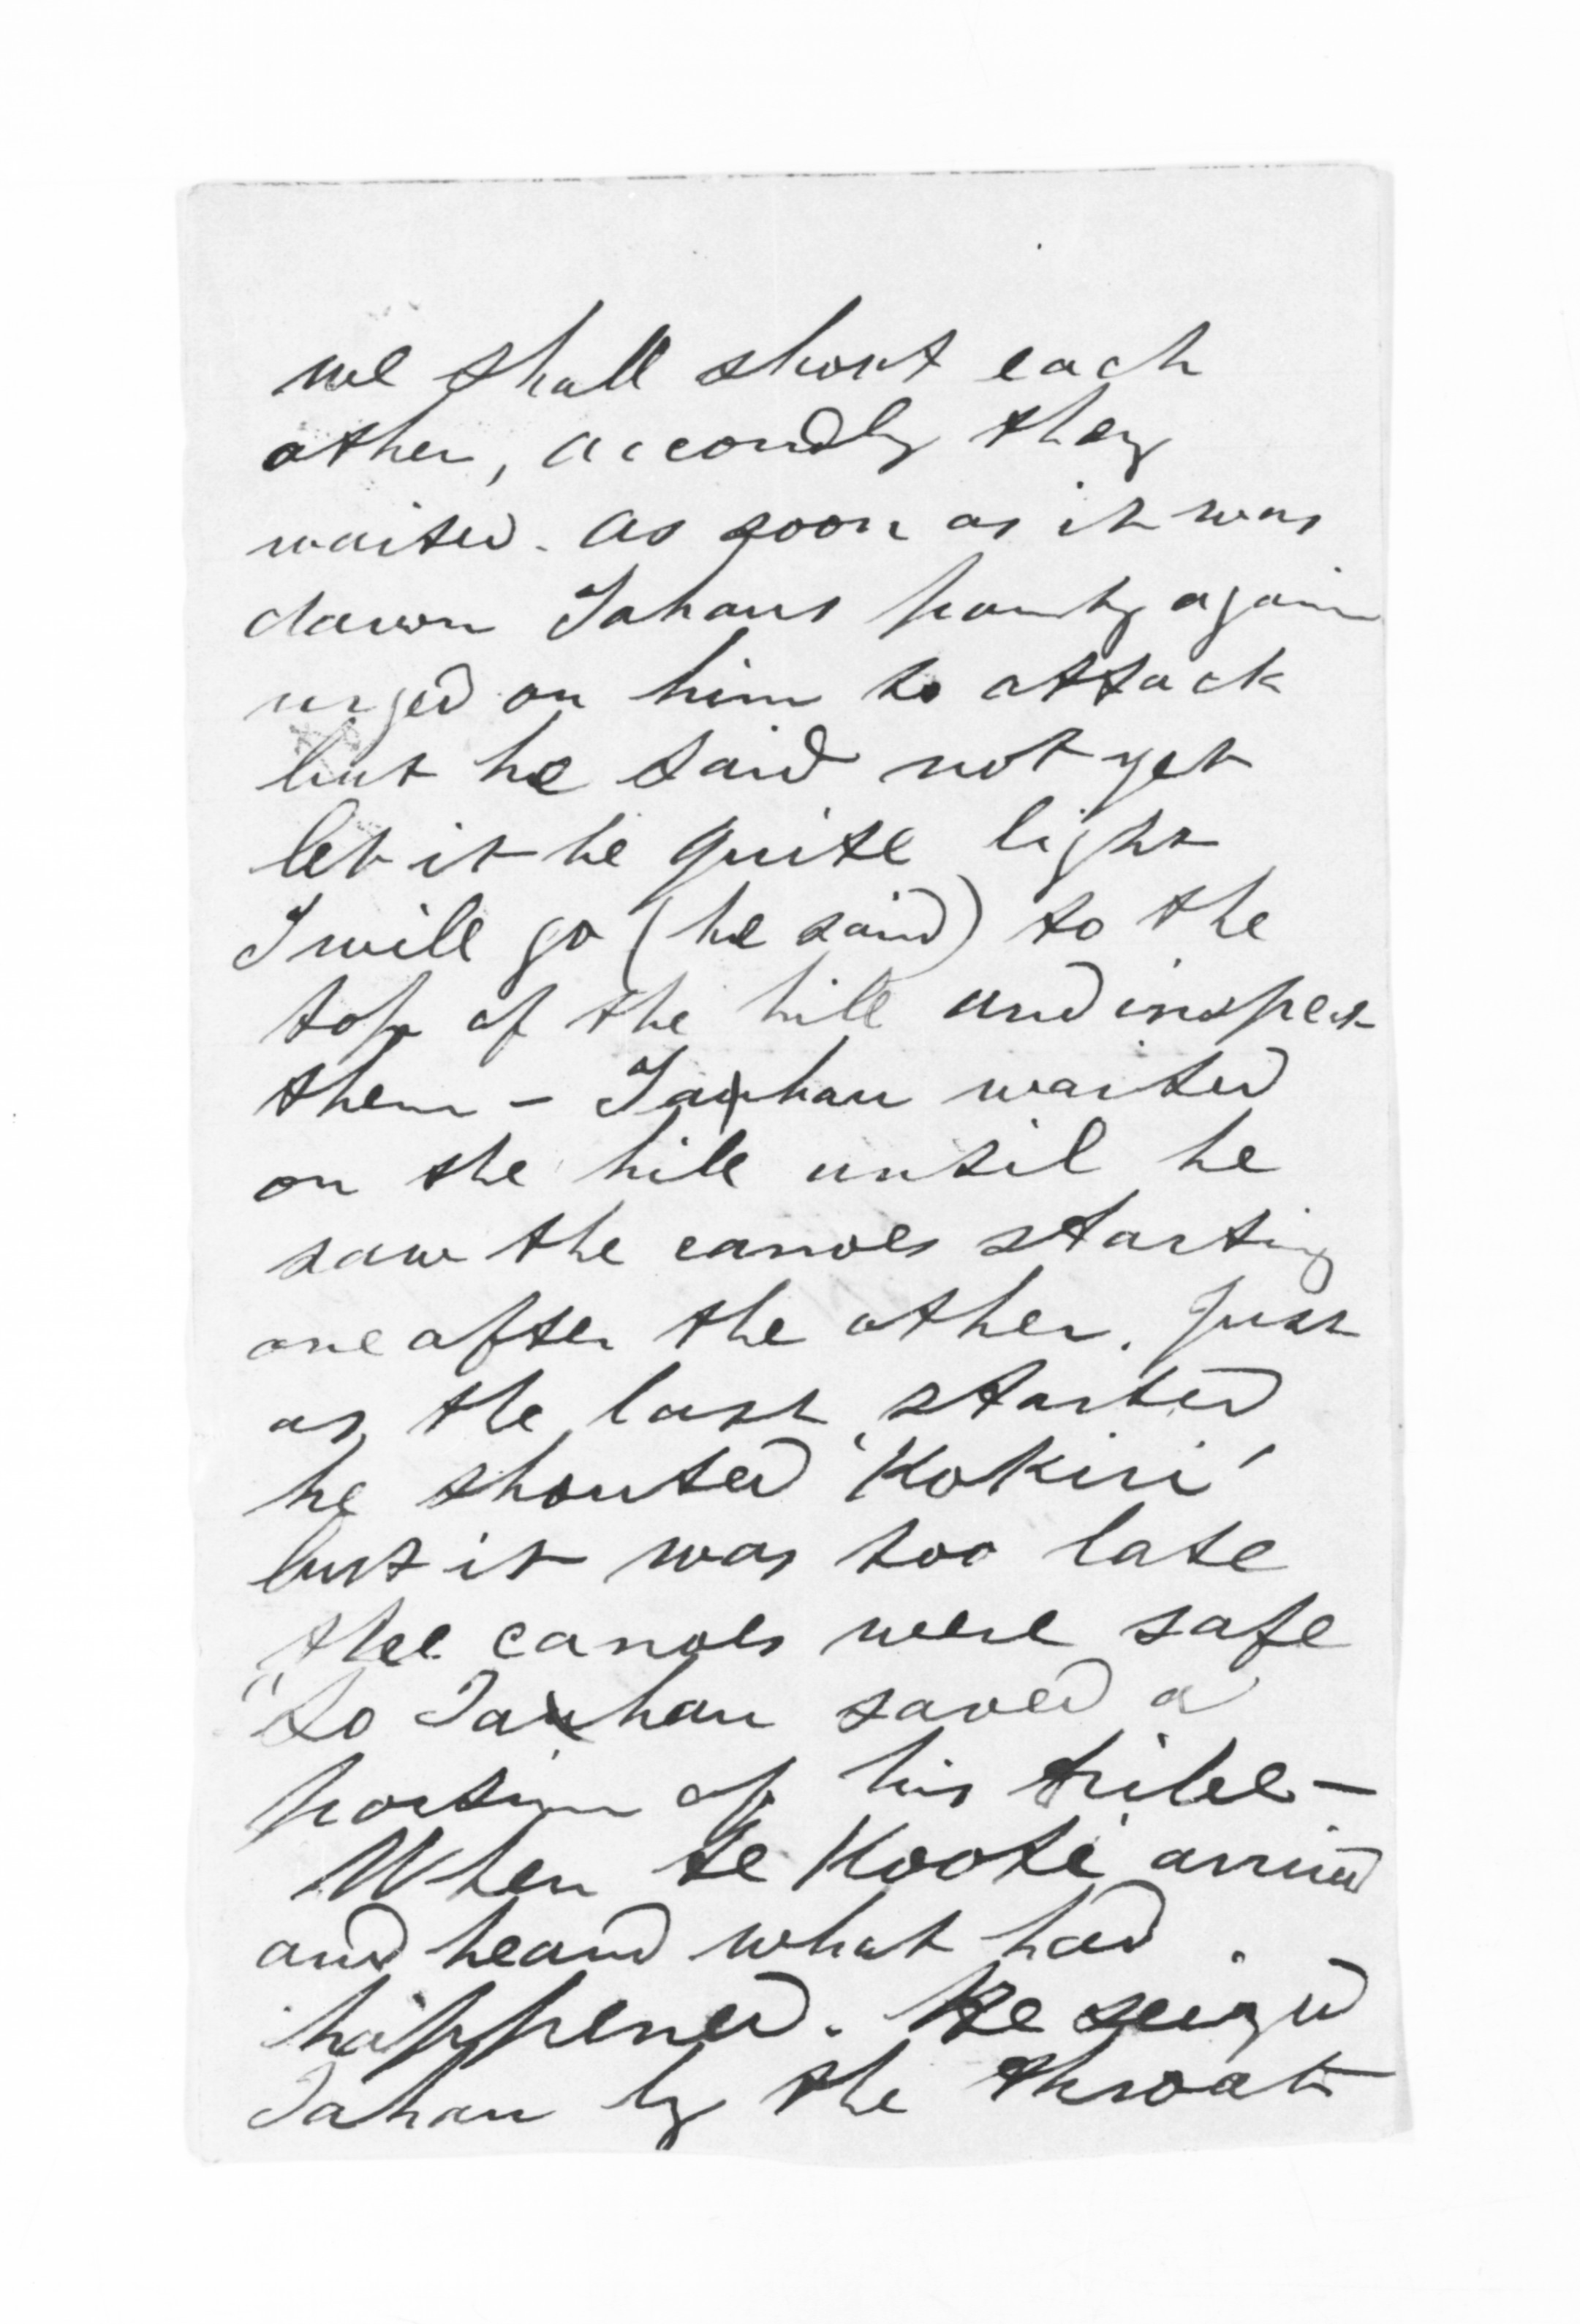 we shall shout each
other, accordly they
waited. as soon as it was
dawn Tahaus party again
urged on him to attack
but he said not yet
let it be quite light
I will go (he said) to the
top of the hill and inspect
them - Tahau waited
on the hill until he
saw the canoes starting
one after the other. Just
as the last started
he shouted 'Kokiri'
but it was too late
the canoes were safe
"So Tahau saved a
portion of his tribe -
When te Kooti arrived
and heard what had
happened. He seized
Tahau by the throat